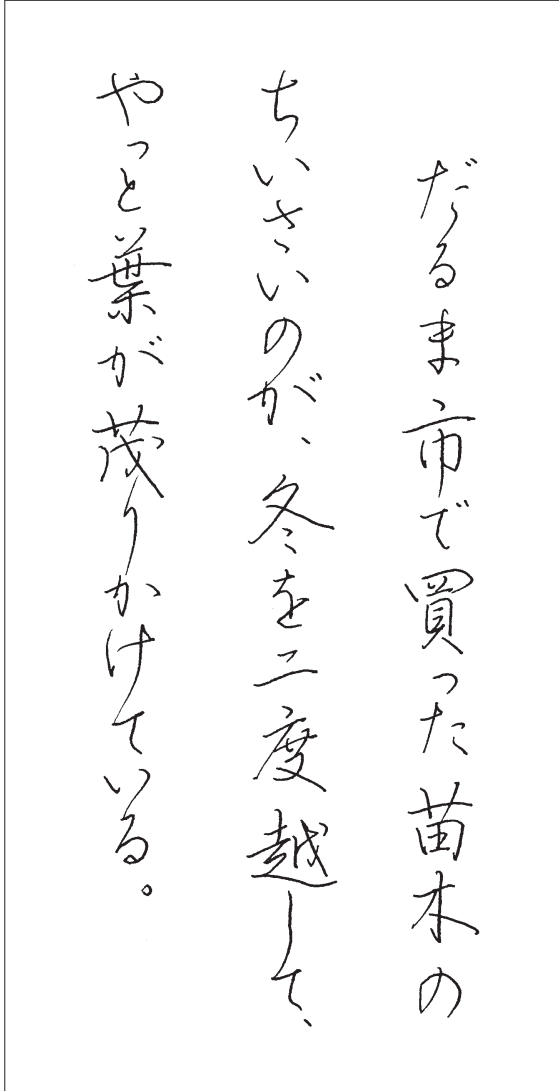 だるま市で買った苗木の
ちいさいのが、冬を二度越して、
やっと葉が茂りかけている。